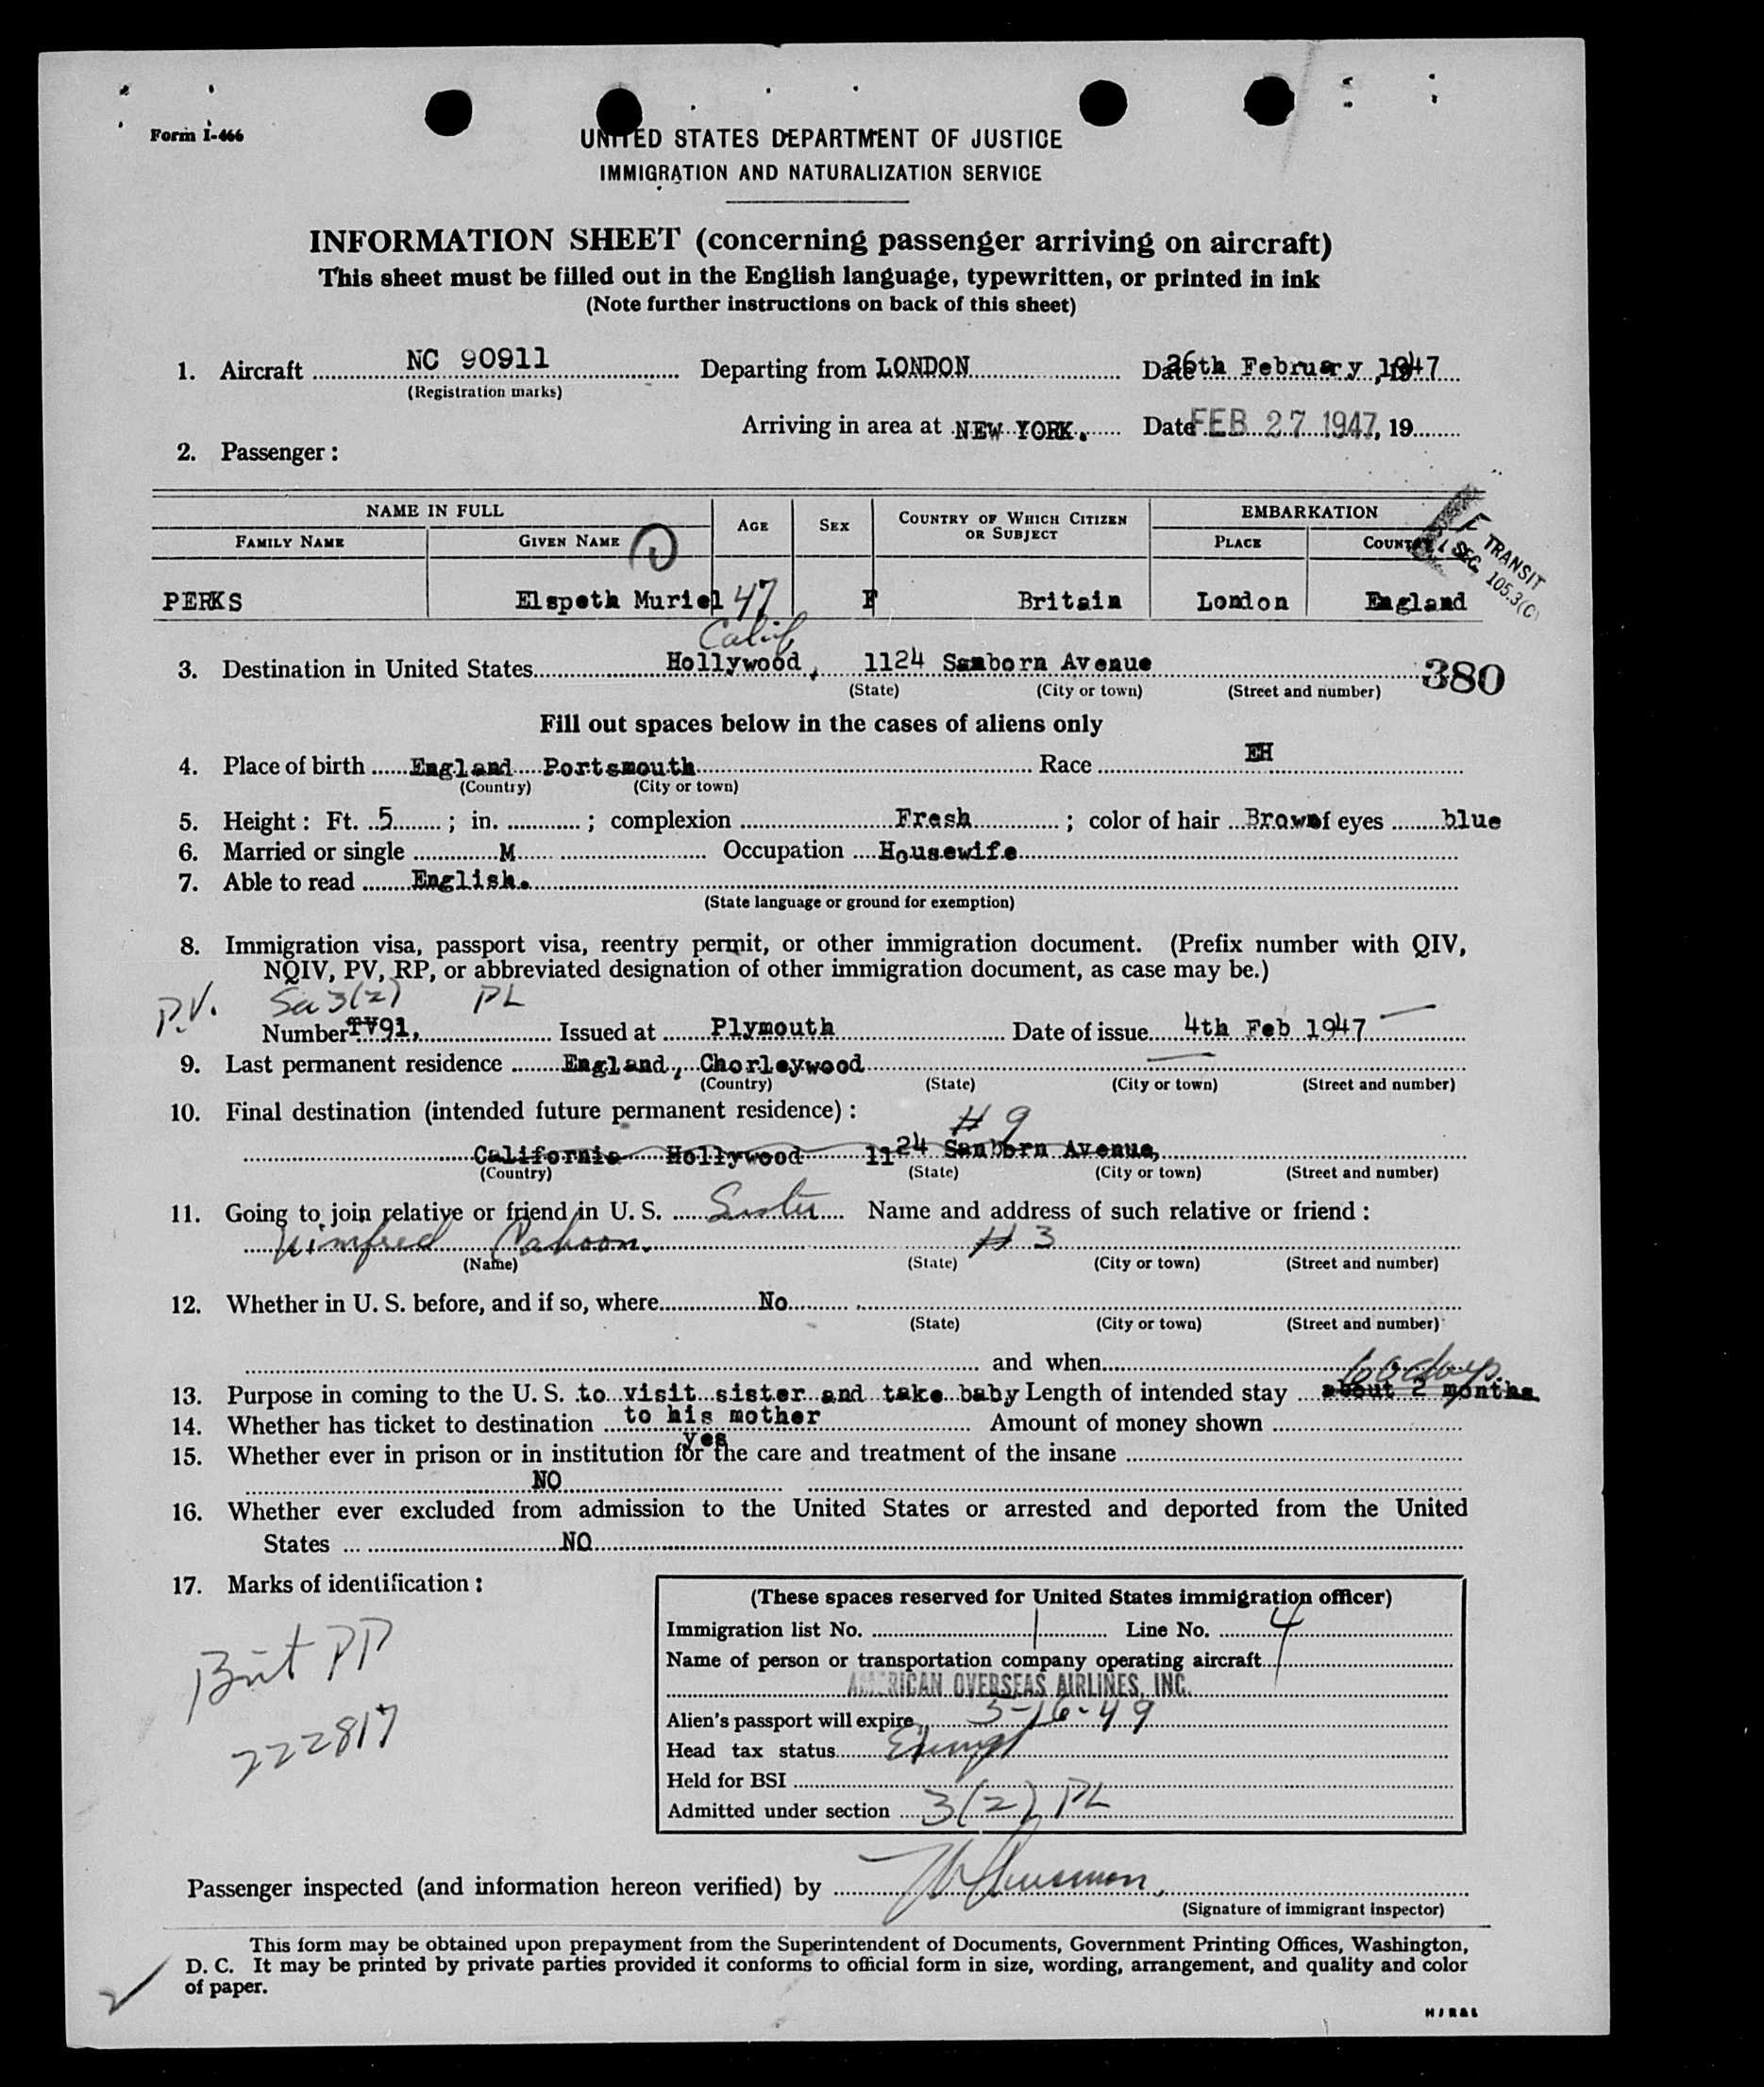 Form I-466
UNITED STATES DEPARTMENT OF JUSTICE
IMMIGRATION AND NATURALIZATION SERVICE
INFORMATION SHEET (concerning passenger arriving on aircraft)
This sheet must be filled out in the English language, typewritten, or printed in ink
(Note further instructions on back of this sheet)
1. Aircraft NC 90911 Departing from LONDON Date 26th February, 1947
(Registration marks)
Arriving in area at NEW YORK. Date FEB 27 1947, 19
2. Passenger:
NAME IN FULL AGE SEX COUNTRY OF WHICH CITIZEN OR SUBJECT EMBARKATION
FAMILY NAME GIVEN NAME PLACE COUNTRY
E TRANSIT
SEC. 105.3(C)
PERKS Elspeth Muriel 47 F Britain London England
Calif
3. Destination in United States Hollywood, 1124 Sanborn Avenue 380
(State) (City or town) (Street and number)
Fill out spaces below in the cases of aliens only
4. Place of birth England Portsmouth Race EH
(Country) (City or town)
5. Height: Ft. 5 ; in. ; complexion Fresh ; color of hair Brown of eyes blue
6. Married or single M Occupation Housewife
7. Able to read English.
(State language or ground for exemption)
8. Immigration visa, passport visa, reentry permit, or other immigration document. (Prefix number with QIV,
NQIV, PV, RP, or abbreviated designation of other immigration document, as case may be.)
P.V. Sec 3(2) PL
Number TV91, Issued at Plymouth Date of issue 4th Feb 1947
9. Last permanent residence England, Chorleywood
(Country) (State) (City or town) (Street and number)
10. Final destination (intended future permanent residence):
# 9
California Hollywood 1124 Sanborn Avenue,
(Country) (State) (City or town) (Street and number)
11. Going to join relative or friend in U. S. Sister Name and address of such relative or friend:
Winifred Cahoon. # 3
(Name) (State) (City or town) (Street and number)
12. Whether in U. S. before, and if so, where No
(State) (City or town) (Street and number)
and when
60 days
13. Purpose in coming to the U. S. to visit sister and take baby Length of intended stay about 2 months
14. Whether has ticket to destination to his mother Amount of money shown
yes
15. Whether ever in prison or in institution for the care and treatment of the insane
NO
16. Whether ever excluded from admission to the United States or arrested and deported from the United
States NO
17. Marks of identification:
Brit PP
222817
(These spaces reserved for United States immigration officer)
Immigration list No. 1 Line No. 4
Name of person or transportation company operating aircraft
AMERICAN OVERSEAS AIRLINES, INC.
Alien's passport will expire 5-16-49
Head tax status Exempt
Held for BSI
Admitted under section 3(2) PL
Passenger inspected (and information hereon verified) by
(Signature of immigrant inspector)
This form may be obtained upon prepayment from the Superintendent of Documents, Government Printing Offices, Washington,
D. C. It may be printed by private parties provided it conforms to official form in size, wording, arrangement, and quality and color
of paper.